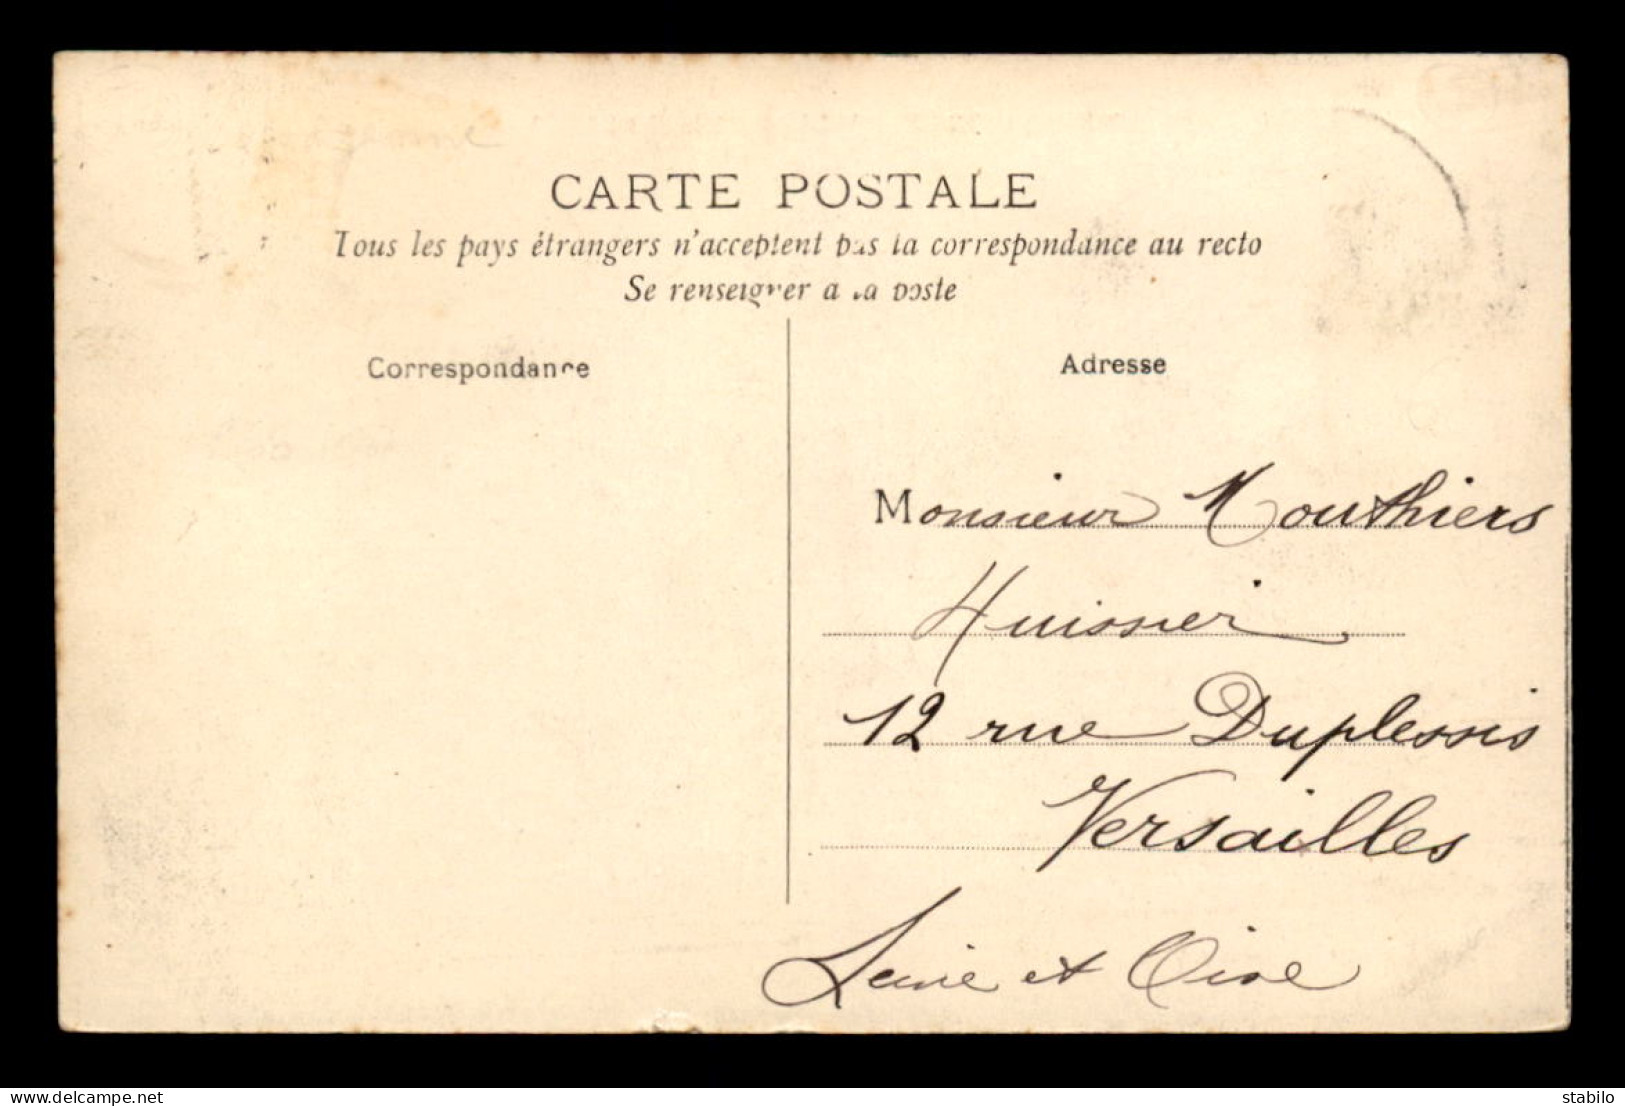 CARTE POSTALE
Tous les pays étrangers n'acceptent pas la correspondance au recto
Se renseigner a la poste
Correspondance
Adresse
Monsieur Mouthiers
Huissier
12 rue Duplessis
Versailles
Seine et Oise
www.delcampe.net
stabilo